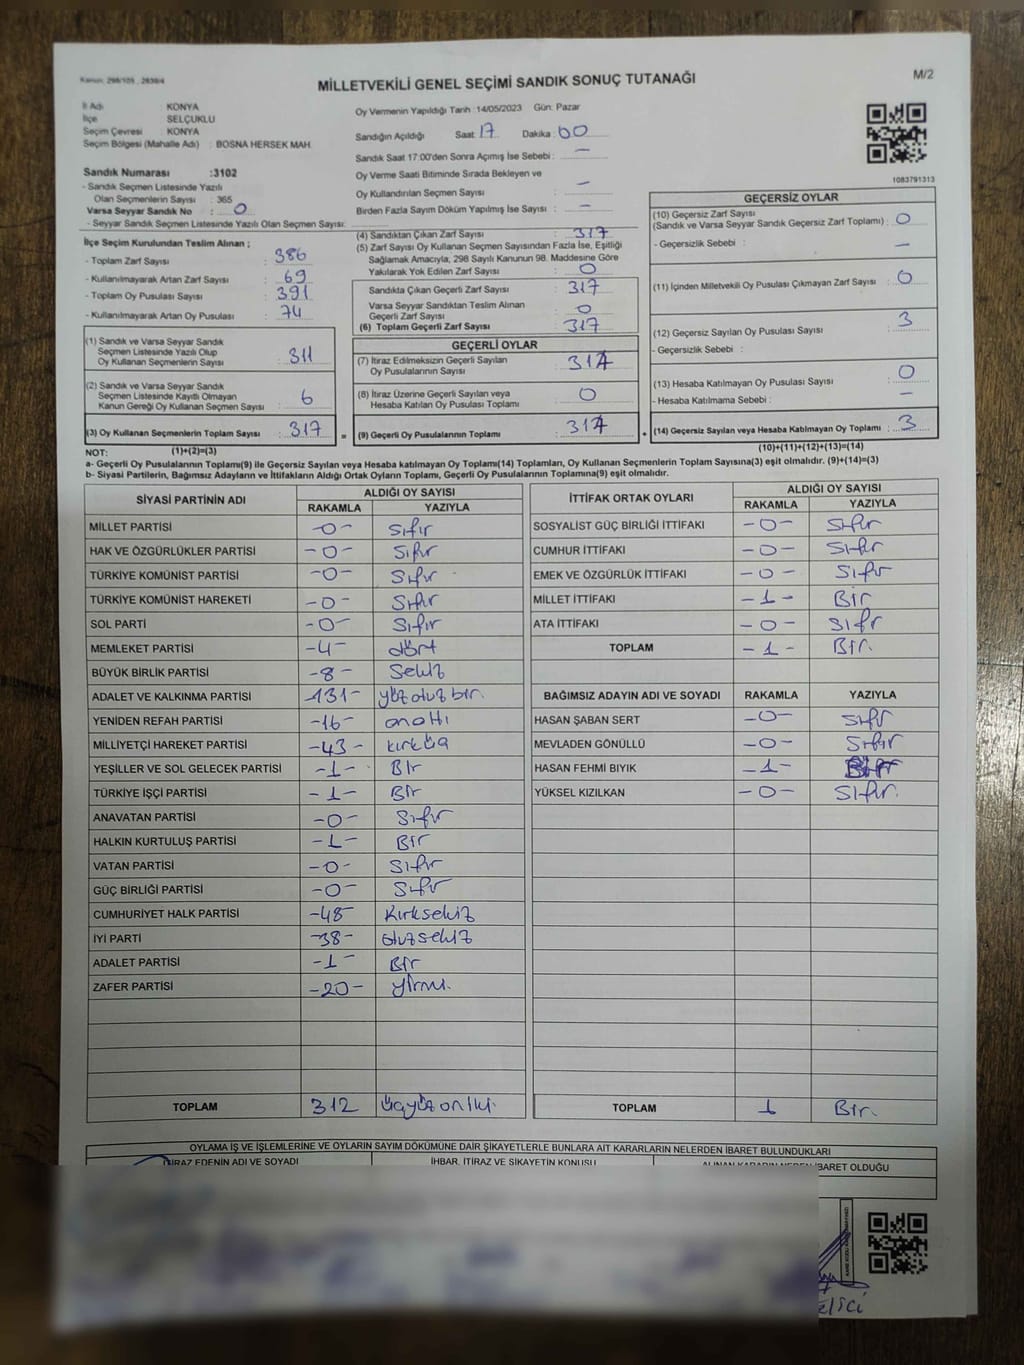 Kanun: 298/105 , 2839/4
MİLLETVEKİLİ GENEL SEÇİMİ SANDIK SONUÇ TUTANAĞI
M/2
İl Adı : KONYA
İlçe : SELÇUKLU
Seçim Çevresi : KONYA
Seçim Bölgesi (Mahalle Adı) : BOSNA HERSEK MAH.
Oy Vermenin Yapıldığı Tarih : 14/05/2023 Gün: Pazar
Sandığın Açıldığı Saat : 17 Dakika : 00
Sandık Saat 17:00'den Sonra Açımış İse Sebebi : -
Oy Verme Saati Bitiminde Sırada Bekleyen ve
Oy Kullandırılan Seçmen Sayısı : -
Birden Fazla Sayım Döküm Yapılmış İse Sayısı : -
1083791313
Sandık Numarası :3102
- Sandık Seçmen Listesinde Yazılı
Olan Seçmenlerin Sayısı : 365
Varsa Seyyar Sandık No : 0
- Seyyar Sandık Seçmen Listesinde Yazılı Olan Seçmen Sayısı:
İlçe Seçim Kurulundan Teslim Alınan ;
- Toplam Zarf Sayısı : 386
- Kullanılmayarak Artan Zarf Sayısı : 69
- Toplam Oy Pusulası Sayısı : 391
- Kullanılmayarak Artan Oy Pusulası : 74
(1) Sandık ve Varsa Seyyar Sandık
Seçmen Listesinde Yazılı Olup
Oy Kullanan Seçmenlerin Sayısı : 311
(2) Sandık ve Varsa Seyyar Sandık
Seçmen Listesinde Kayıtlı Olmayan
Kanun Gereği Oy Kullanan Seçmen Sayısı : 6
(3) Oy Kullanan Seçmenlerin Toplam Sayısı : 317 =
(4) Sandıktan Çıkan Zarf Sayısı : 317
(5) Zarf Sayısı Oy Kullanan Seçmen Sayısından Fazla İse, Eşitliği
Sağlamak Amacıyla, 298 Sayılı Kanunun 98. Maddesine Göre
Yakılarak Yok Edilen Zarf Sayısı : 0
Sandıkta Çıkan Geçerli Zarf Sayısı : 317
Varsa Seyyar Sandıktan Teslim Alınan
Geçerli Zarf Sayısı : 0
(6) Toplam Geçerli Zarf Sayısı : 317
GEÇERLİ OYLAR
(7) İtiraz Edilmeksizin Geçerli Sayılan
Oy Pusulalarının Sayısı : 314
(8) İtiraz Üzerine Geçerli Sayılan veya
Hesaba Katılan Oy Pusulası Toplamı : 0
(9) Geçerli Oy Pusulalarının Toplamı : 314 +
GEÇERSİZ OYLAR
(10) Geçersiz Zarf Sayısı
(Sandık ve Varsa Seyyar Sandık Geçersiz Zarf Toplamı) : 0
- Geçersizlik Sebebi : -
(11) İçinden Milletvekili Oy Pusulası Çıkmayan Zarf Sayısı : 0
(12) Geçersiz Sayılan Oy Pusulası Sayısı : 3
- Geçersizlik Sebebi :
(13) Hesaba Katılmayan Oy Pusulası Sayısı : 0
- Hesaba Katılmama Sebebi : -
(14) Geçersiz Sayılan veya Hesaba Katılmayan Oy Toplamı : 3
NOT: (1)+(2)=(3)
(10)+(11)+(12)+(13)=(14)
a- Geçerli Oy Pusulalarının Toplamı(9) ile Geçersiz Sayılan veya Hesaba katılmayan Oy Toplamı(14) Toplamları, Oy Kullanan Seçmenlerin Toplam Sayısına(3) eşit olmalıdır. (9)+(14)=(3)
b- Siyasi Partilerin, Bağımsız Adayların ve İttifakların Aldığı Ortak Oyların Toplamı, Geçerli Oy Pusulalarının Toplamına(9) eşit olmalıdır.
SİYASİ PARTİNİN ADI ALDIĞI OY SAYISI
RAKAMLA YAZIYLA
MİLLET PARTİSİ -0- Sıfır
HAK VE ÖZGÜRLÜKLER PARTİSİ -0- Sıfır
TÜRKİYE KOMÜNİST PARTİSİ -0- Sıfır
TÜRKİYE KOMÜNİST HAREKETİ -0- Sıfır
SOL PARTİ -0- Sıfır
MEMLEKET PARTİSİ -4- dört
BÜYÜK BİRLİK PARTİSİ -8- Sekiz
ADALET VE KALKINMA PARTİSİ -131- yüzotuzbir.
YENİDEN REFAH PARTİSİ -16- onaltı
MİLLİYETÇİ HAREKET PARTİSİ -43- kırküç
YEŞİLLER VE SOL GELECEK PARTİSİ -1- Bir
TÜRKİYE İŞÇİ PARTİSİ -1- Bir
ANAVATAN PARTİSİ -0- Sıfır
HALKIN KURTULUŞ PARTİSİ -1- Bir
VATAN PARTİSİ -0- Sıfır
GÜÇ BİRLİĞİ PARTİSİ -0- Sıfır
CUMHURİYET HALK PARTİSİ -48- Kırksekiz
İYİ PARTİ -38- otuzsekiz
ADALET PARTİSİ -1- Bir
ZAFER PARTİSİ -20- yirmi.
TOPLAM 312 üçyüzoniki
İTTİFAK ORTAK OYLARI ALDIĞI OY SAYISI
RAKAMLA YAZIYLA
SOSYALİST GÜÇ BİRLİĞİ İTTİFAKI -0- Sıfır
CUMHUR İTTİFAKI -0- Sıfır
EMEK VE ÖZGÜRLÜK İTTİFAKI -0- Sıfır
MİLLET İTTİFAKI -1- Bir
ATA İTTİFAKI -0- Sıfır
TOPLAM -1- Bir.
BAĞIMSIZ ADAYIN ADI VE SOYADI RAKAMLA YAZIYLA
HASAN ŞABAN SERT -0- Sıfır
MEVLADEN GÖNÜLLÜ -0- Sıfır
HASAN FEHMİ BIYIK -1-
YÜKSEL KIZILKAN -0- Sıfır.
TOPLAM 1 Bir.
OYLAMA İŞ VE İŞLEMLERİNE VE OYLARIN SAYIM DÖKÜMÜNE DAİR ŞİKAYETLERLE BUNLARA AİT KARARLARIN NELERDEN İBARET BULUNDUKLARI
İTİRAZ EDENİN ADI VE SOYADI İHBAR, İTİRAZ VE ŞİKAYETİN KONUSU ALINAN KARARIN NEDEN İBARET OLDUĞU